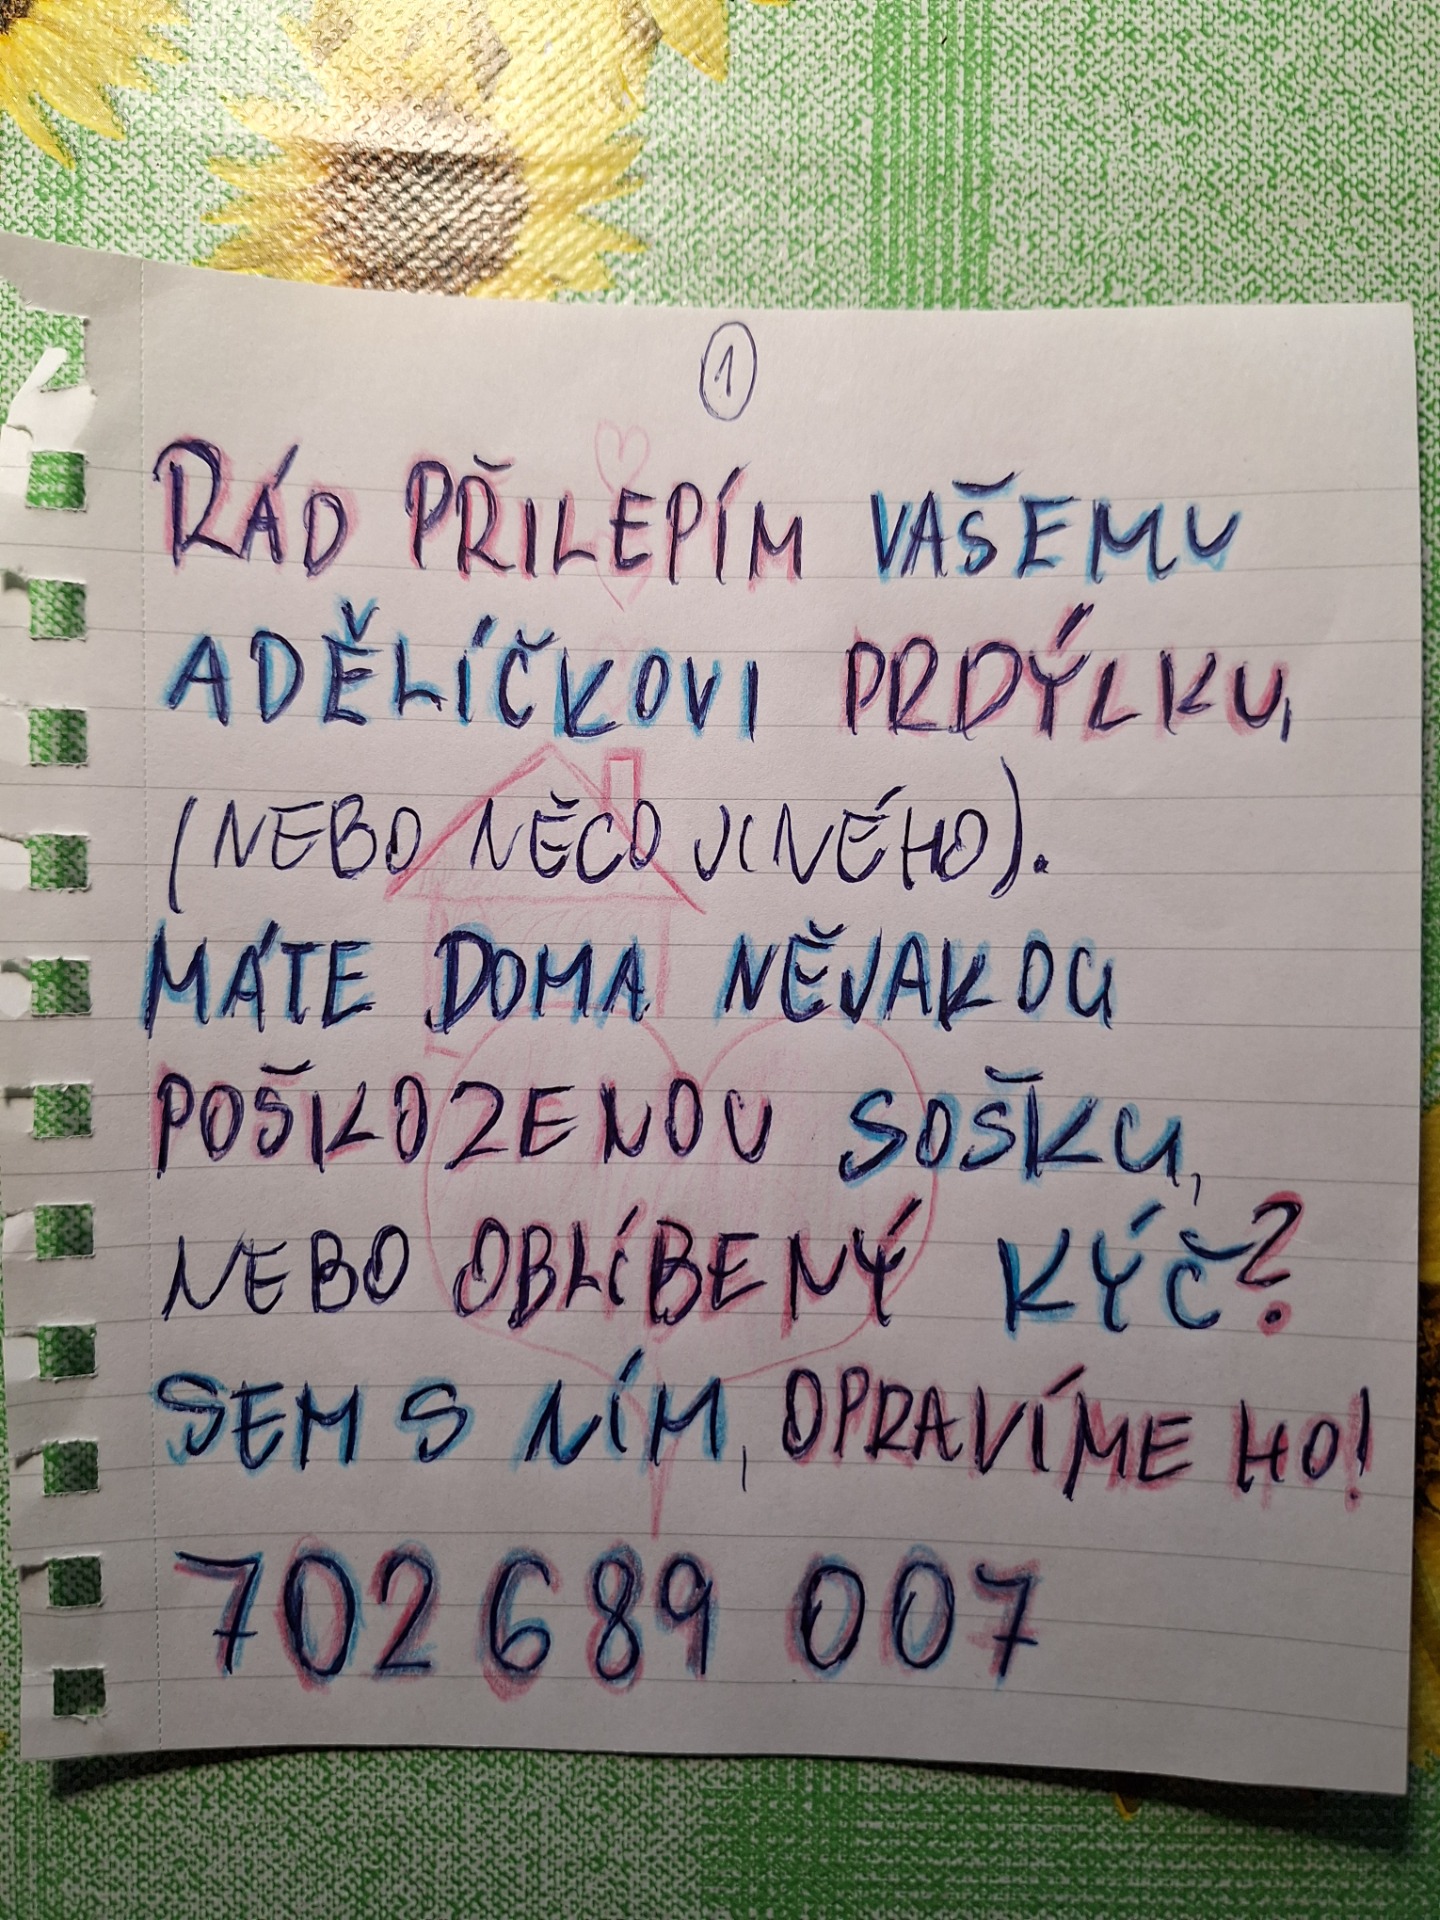 1
RÁD PŘILEPÍM VAŠEMU
ADĚLÍČKOVI PRDÝLKU,
(NEBO NĚCO JINÉHO).
MÁTE DOMA NĚJAKOU
POŠKOZENOU SOŠKU,
NEBO OBLÍBENÝ KÝČ?
SEM S NÍM, OPRAVÍME HO!
702 689 007